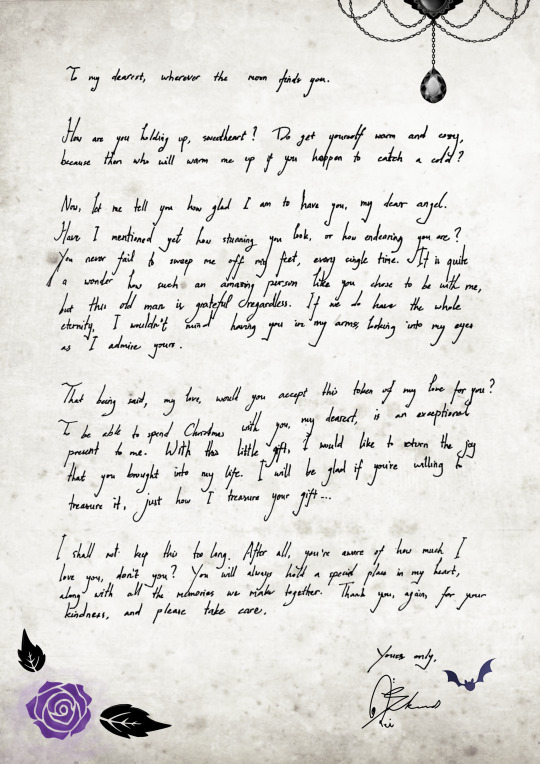 To my dearest, wherever the moon finds you.
How are you holding up, sweetheart? Do get yourself warm and cozy,
because then who will warm me up if you happen to catch a cold?
Now, let me tell you how glad I am to have you, my dear angel.
Have I mentioned yet how stunning you look, or how endearing you are?
You never fail to sweep me off my feet, every single time. It is quite
a wonder how such an amazing person like you chose to be with me,
but this old man is grateful regardless. If we do have the whole
eternity, I wouldn't mind having you in my arms, looking into my eyes
as I admire yours.
That being said, my love, would you accept this token of my love for you?
To be able to spend Christmas with you, my dearest, is an exceptional
present to me. With this little gift, I would like to return the joy
that you brought into my life. I will be glad if you're willing to
treasure it, just how I treasure your gift...
I shall not keep this too long. After all, you're aware of how much I
love you, don't you? You will always hold a special place in my heart,
along with all the memories we make together. Thank you, again, for your
kindness, and please take care.
Yours only,